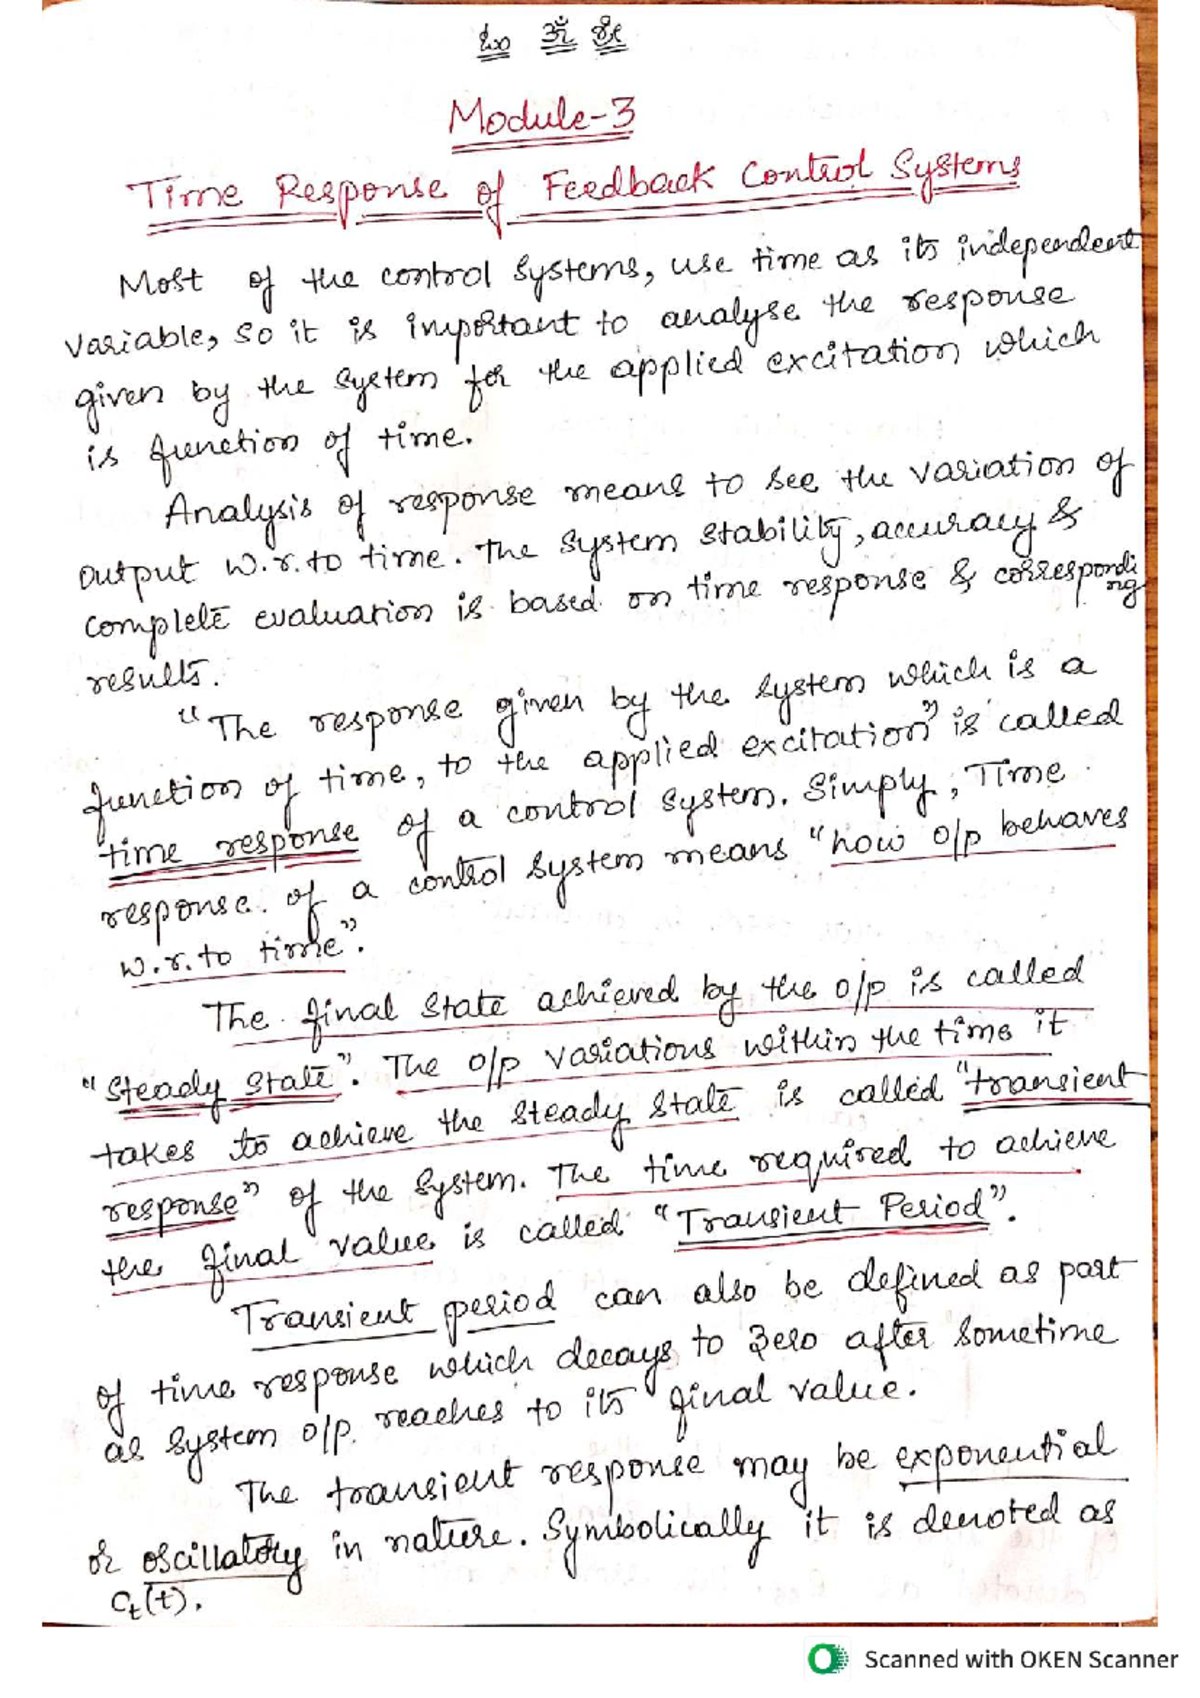 ॐ
Module-3
Time Response of Feedback Control Systems
Most of the control systems, use time as its independent
variable, so it is important to analyse the response
given by the system for the applied excitation which
is function of time.
Analysis of response means to see the variation of
output w.r.to time. The system stability, accuracy &
complete evaluation is based on time response & corresponding
results.
"The response given by the system which is a
function of time, to the applied excitation" is called
time response of a control system. Simply, Time
response of a control system means "how o/p behaves
w.r.to time".
The final state achieved by the o/p is called
"Steady State". The o/p variations within the time it
takes to achieve the steady state is called "transient
response" of the system. The time required to achieve
the final value is called "Transient Period".
Transient period can also be defined as part
of time response which decays to zero after sometime
as system o/p reaches to its final value.
The transient response may be exponential
or oscillatory in nature. Symbolically it is denoted as
Ct(t).
Scanned with OKEN Scanner